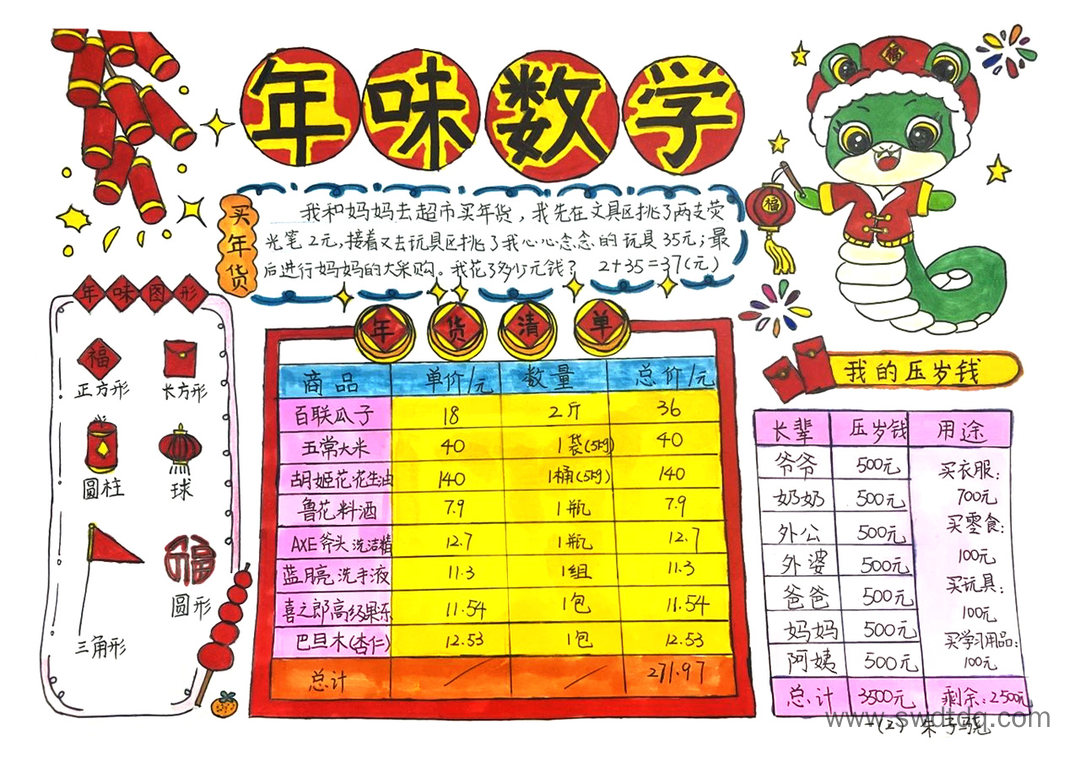 年味数学
买年货
我和妈妈去超市买年货，我先在文具区挑了两支荧
光笔2元，接着又去玩具区挑了我心心念念的玩具35元；最
后进行妈妈的大采购。我花了多少元钱？ 2+35=37(元)
年味图形
福
正方形 长方形
圆柱 球
福
三角形 圆形
年货清单
商品 单价/元 数量 总价/元
百联瓜子 18 2斤 36
五常大米 40 1袋(5kg) 40
胡姬花花生油 140 1桶(5kg) 140
鲁花料酒 7.9 1瓶 7.9
AXE斧头洗洁精 12.7 1瓶 12.7
蓝月亮洗手液 11.3 1组 11.3
喜之郎高级果冻 11.54 1包 11.54
巴旦木(杏仁) 12.53 1包 12.53
总计 / / 271.97
福
福
我的压岁钱
长辈 压岁钱 用途
爷爷 500元
奶奶 500元
外公 500元
外婆 500元
爸爸 500元
妈妈 500元
阿姨 500元
买衣服：
700元
买零食：
100元
买玩具：
100元
买学习用品：
100元
总计 3500元 剩余：2500元
www.swdtdq.com
一(2)